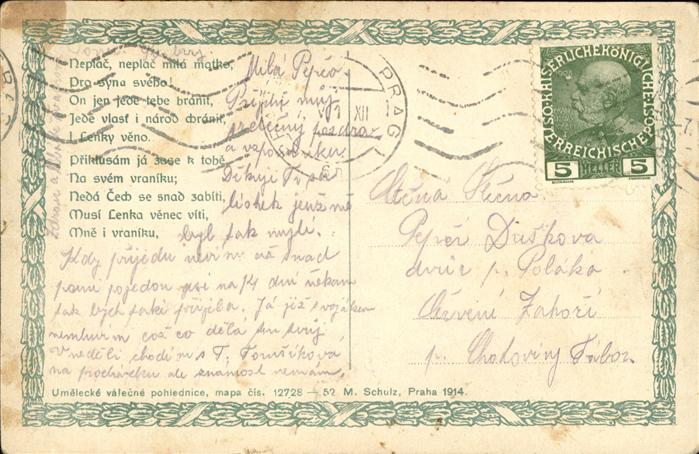 Neplač, neplač milá matko,
Pro syna svého!
On jen jede tebe bránit,
Jede vlast i národ chránit,
I Lenky věno.
Přiklusám já zase k tobě
Na svém vraníku;
Nedá Čech se snad zabíti,
Musí Lenka věnec víti,
Mně i vraníku,
Milá Pepčo
Přijmi můj
srdečný pozdrav
a vzpomínku
Děkuji Ti za
lístek jenž mě
byl tak milý.
Kdy přijedu nevím až snad
pojedou na 14 dní
tak bych také přijela. Já již s vojákem
nemluvím což co dělá ten svůj
V neděli chodím s T. Tomšíková
na procházku ale známost nemám.
Umělecké válečné pohlednice, mapa čís. 12728 — 52 M. Schulz, Praha 1914.
PRAG
XII
KAISERLICHEKÖNIGLICHE
ÖSTERREICHISCHE POST
5 HELLER 5
Ctěná Slečna
Pepči Dušková
dvůr p. Poláka
Červení Záhoří
p. Chotoviny Tábor